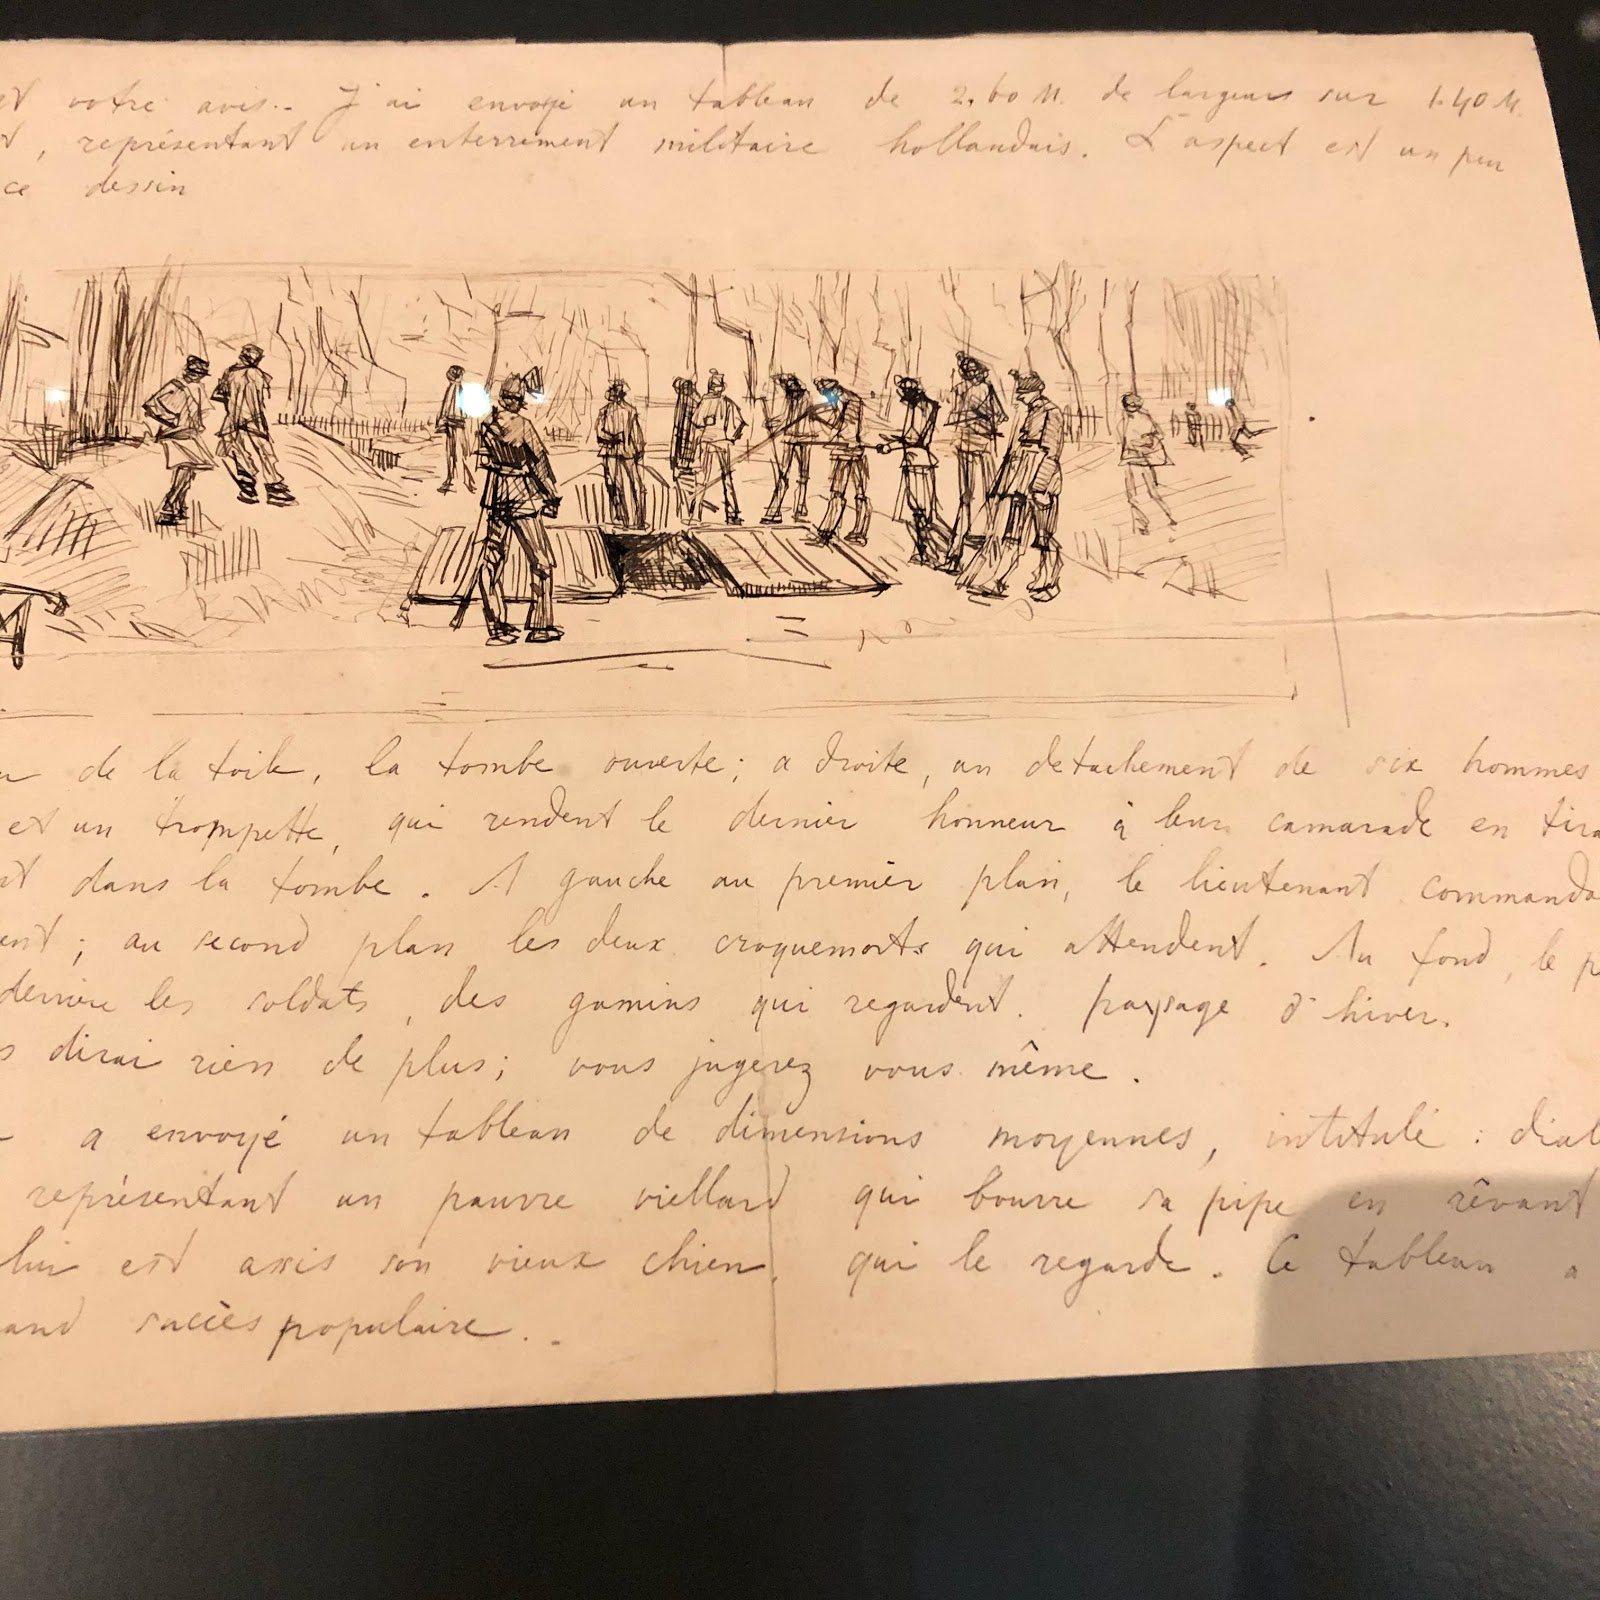 votre avis.. J'ai envoyé un tableau de 2.60 M. de largeur sur 1.40 M.
, représentant un enterrement militaire hollandais. L'aspect est un peu
ce dessin
de la toile, la tombe ouverte; a droite, un detachement de six hommes
et un trompette, qui rendent le dernier honneur à leur camarade en tira
dans la tombe. A gauche au premier plan, le lieutenant commanda
ent; au second plan les deux croquemorts qui attendent. Au fond, le p
derrière les soldats, des gamins qui regardent. paysage d'hiver.
s dirai rien de plus; vous jugerez vous même.
a envoyé un tableau de dimensions moyennes, intitulé: dial
représentant un pauvre viellard qui bourre sa pipe en rêvant
lui est assis son vieux chien, qui le regarde. Ce tableau a
and succès populaire..